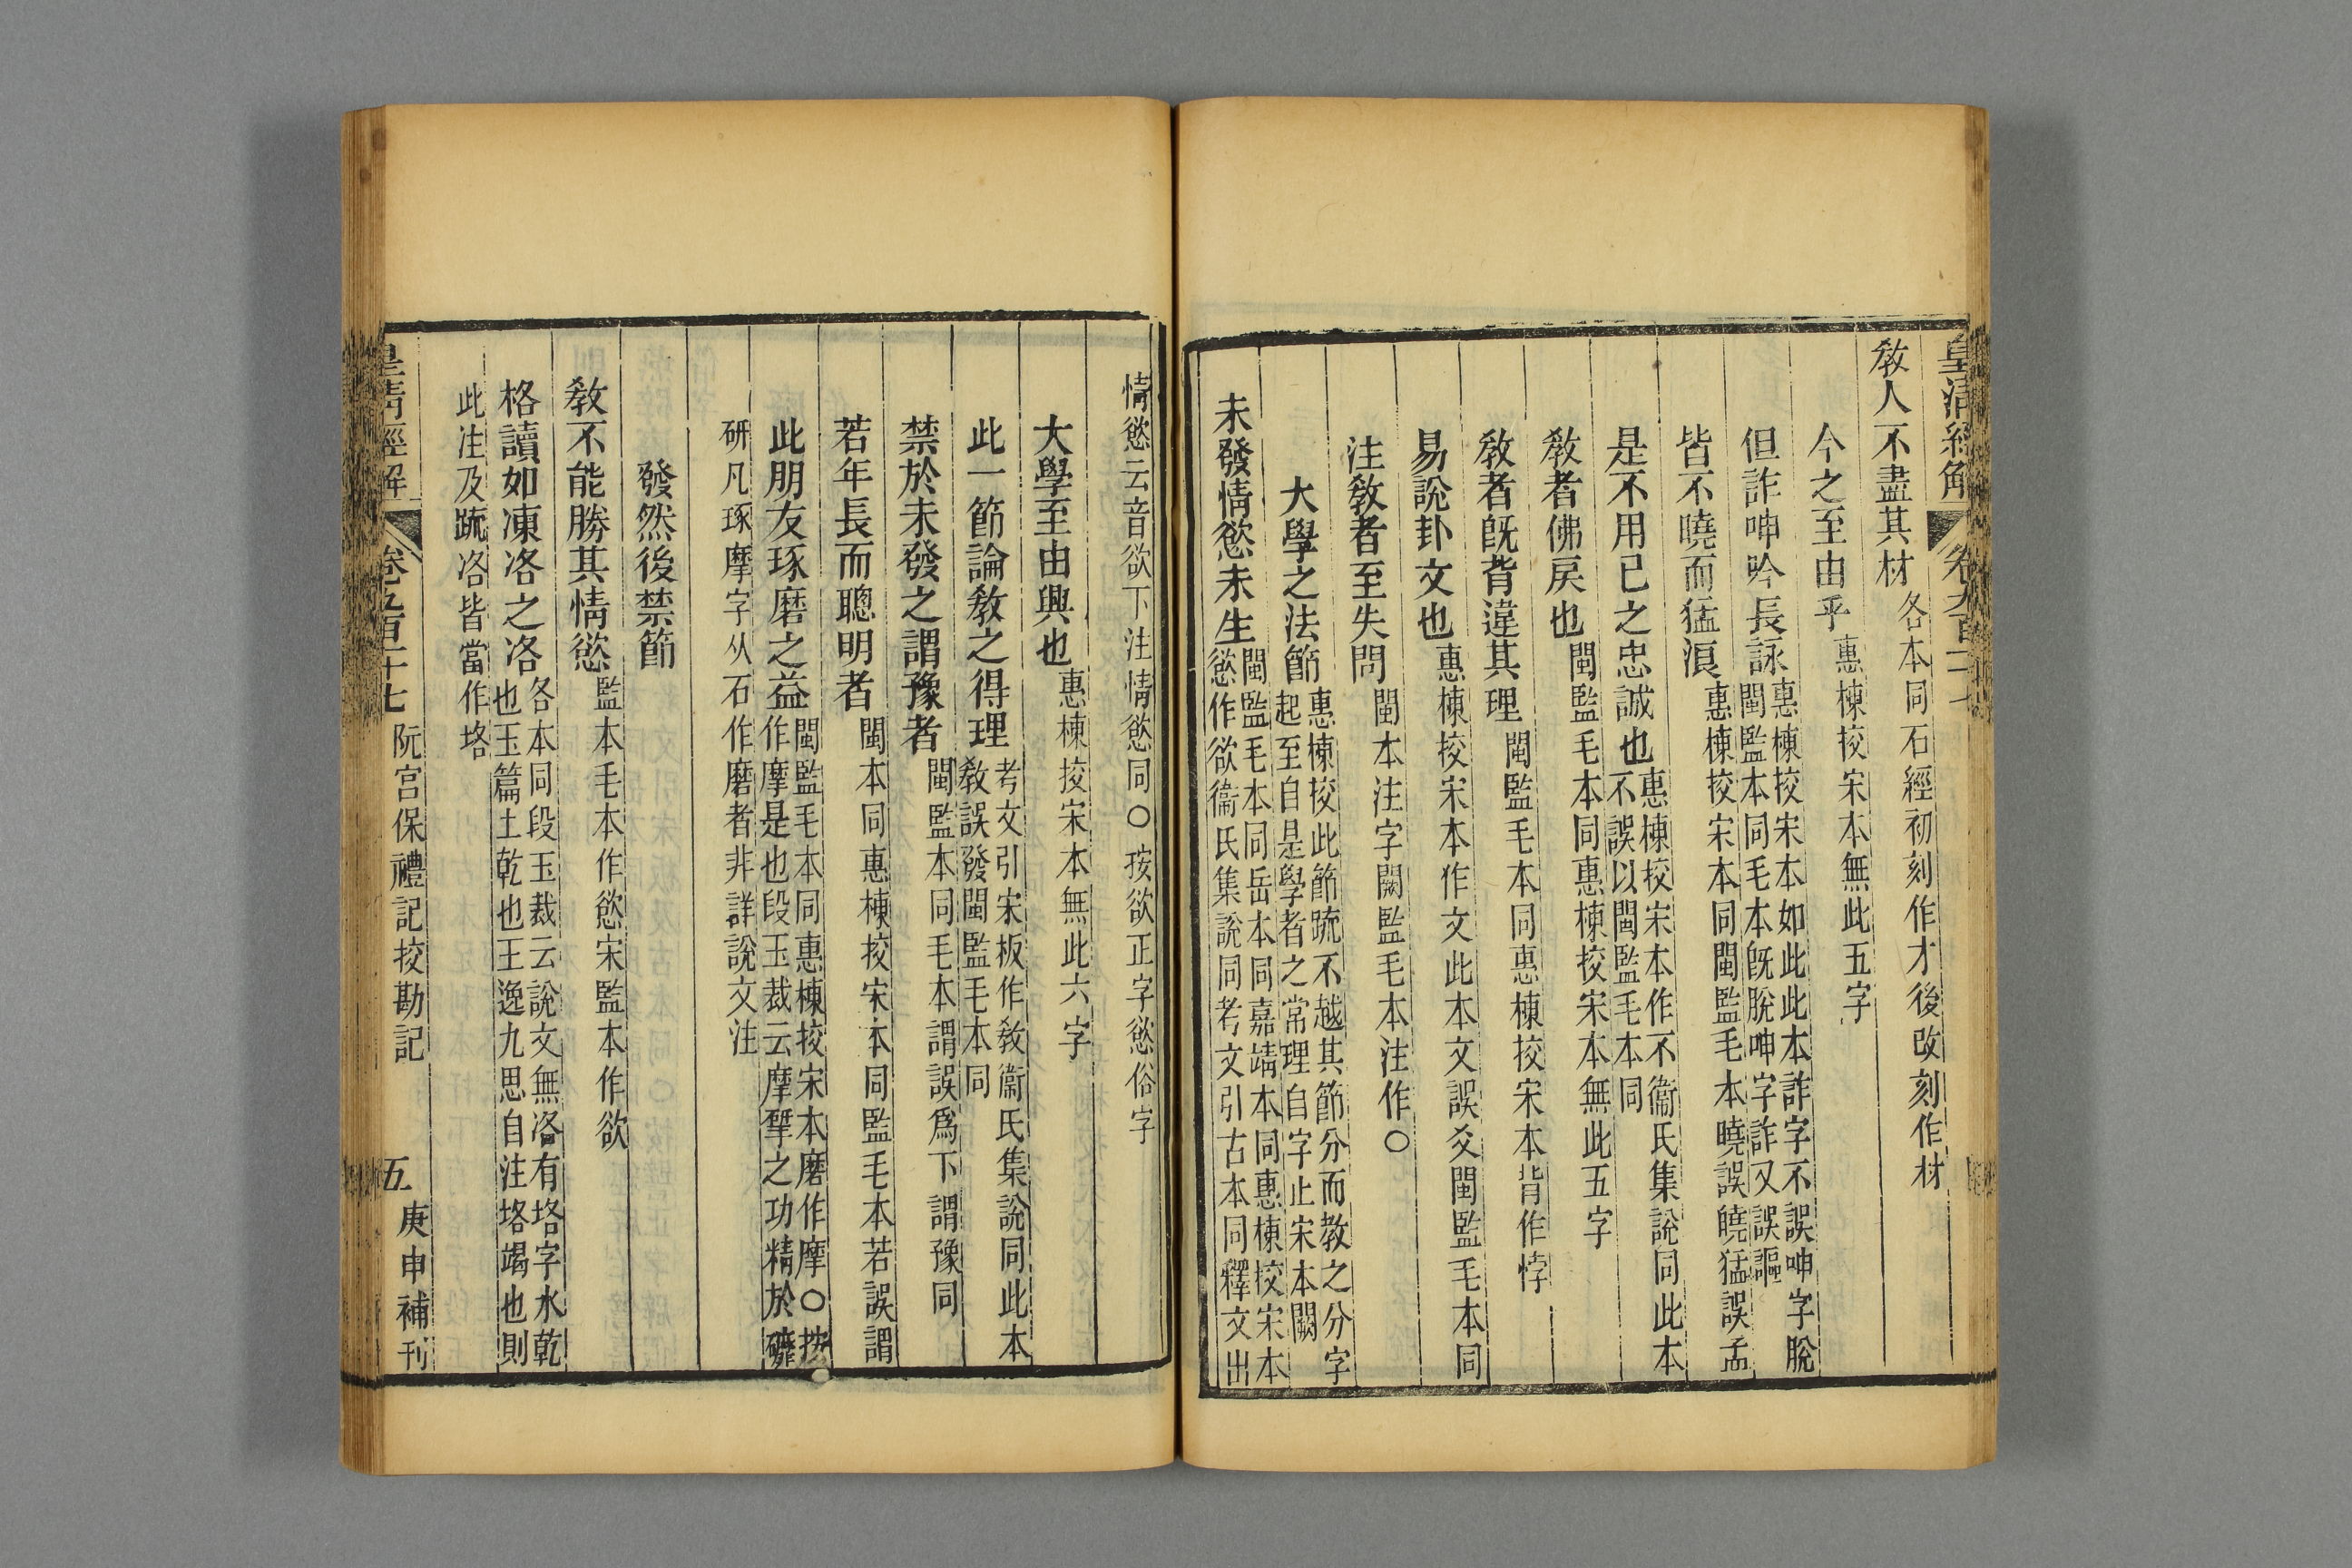 皇清經解 卷九百二十七
教人不盡其材 各本同石經初刻作才後改刻作材
今之至由乎 惠棟挍宋本無此五字
但詐呻吟長詠 惠棟挍宋本如此此本詐字不誤呻字脫閩監本同毛本旣脫呻字詐又誤謳
皆不曉而猛浪 惠棟挍宋本同閩監毛本曉誤皢猛誤孟
是不用己之忠誠也 惠棟挍宋本作不衞氏集說同此本不誤以閩監毛本同
教者佛戾也 閩監毛本同惠棟挍宋本無此五字
教者旣背違其理 閩監毛本同惠棟挍宋本背作悖
易說卦文也 惠棟挍宋本作文此本文誤爻閩監毛本同
注教者至失問 閩本注字闕監毛本注作○
大學之法節 惠棟挍此節疏不越其節分而教之分字起至自是學者之常理自字止宋本闕
未發情慾未生 閩監毛本同岳本同嘉靖本同惠棟挍宋本慾作欲衞氏集說同考文引古本同釋文出
情慾云音欲下注情慾同○按欲正字慾俗字
大學至由興也 惠棟挍宋本無此六字
此一節論教之得理 考文引宋板作教衞氏集說同此本教誤發閩監毛本同
禁於未發之謂豫者 閩監本同毛本謂誤爲下謂豫同
若年長而聰明者 閩本同惠棟挍宋本同監毛本若誤謂
此朋友琢磨之益 閩監毛本同惠棟挍宋本磨作摩○按作摩是也段玉裁云摩揅之功精於礳
研凡琢摩字从石作磨者非詳說文注
發然後禁節
教不能勝其情慾 監本毛本作慾宋監本作欲
格讀如凍洛之洛 各本同段玉裁云說文無洛有垎字水乾也玉篇土乾也王逸九思自注垎竭也則
此注及疏洛皆當作垎
皇清經解 卷九百二十七 阮宮保禮記挍勘記 五 庚申補刊